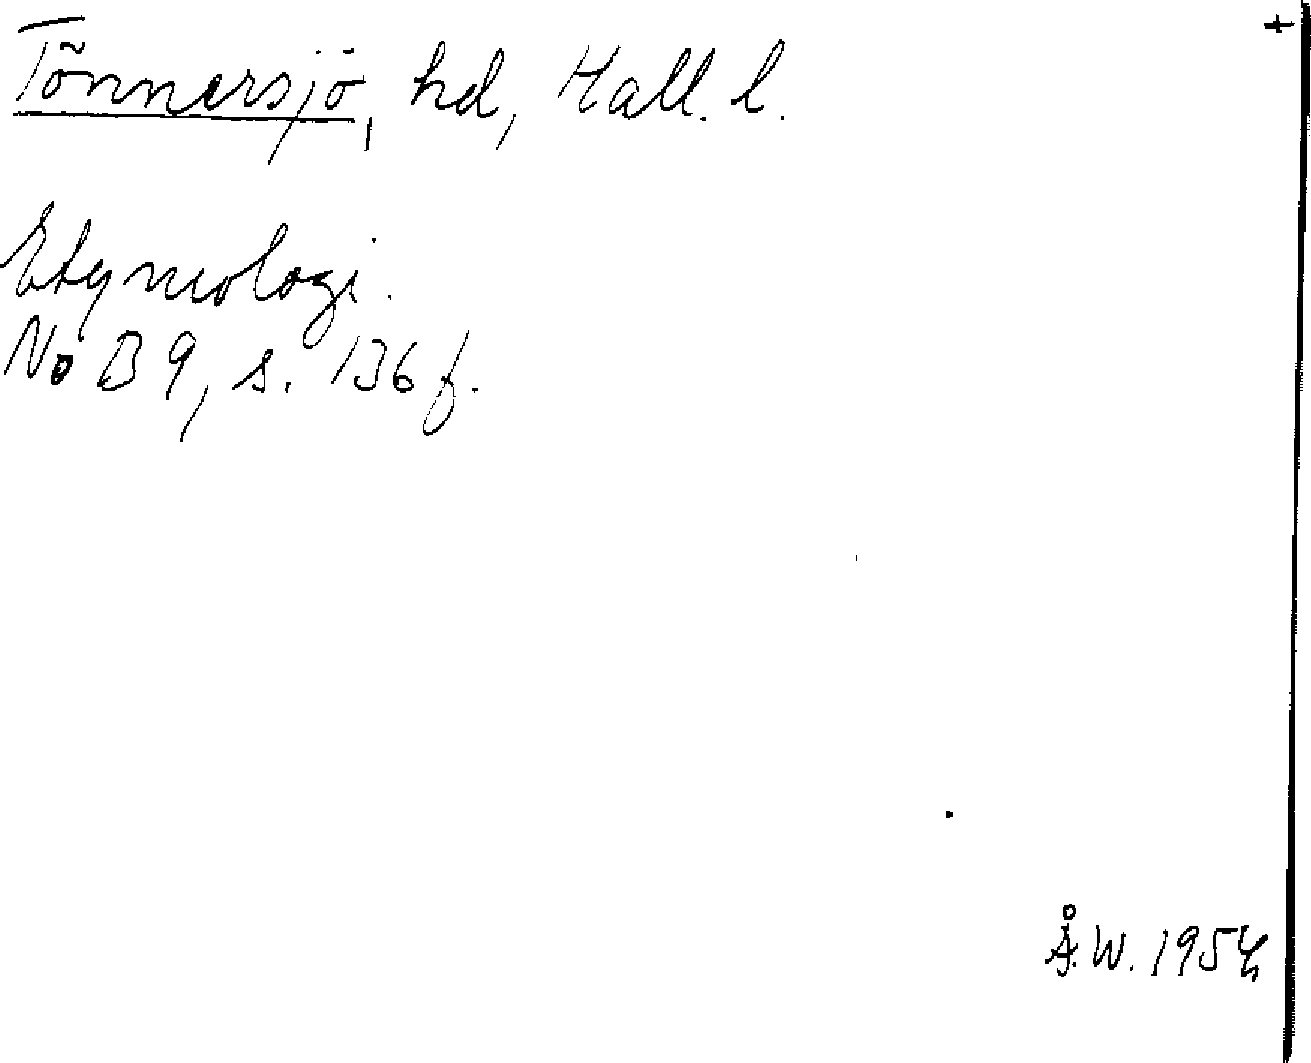 +
Tönnersjö, hd, Hall. l.
Etymologi.
NoB 9, s. 136 f.
Å.W. 1954